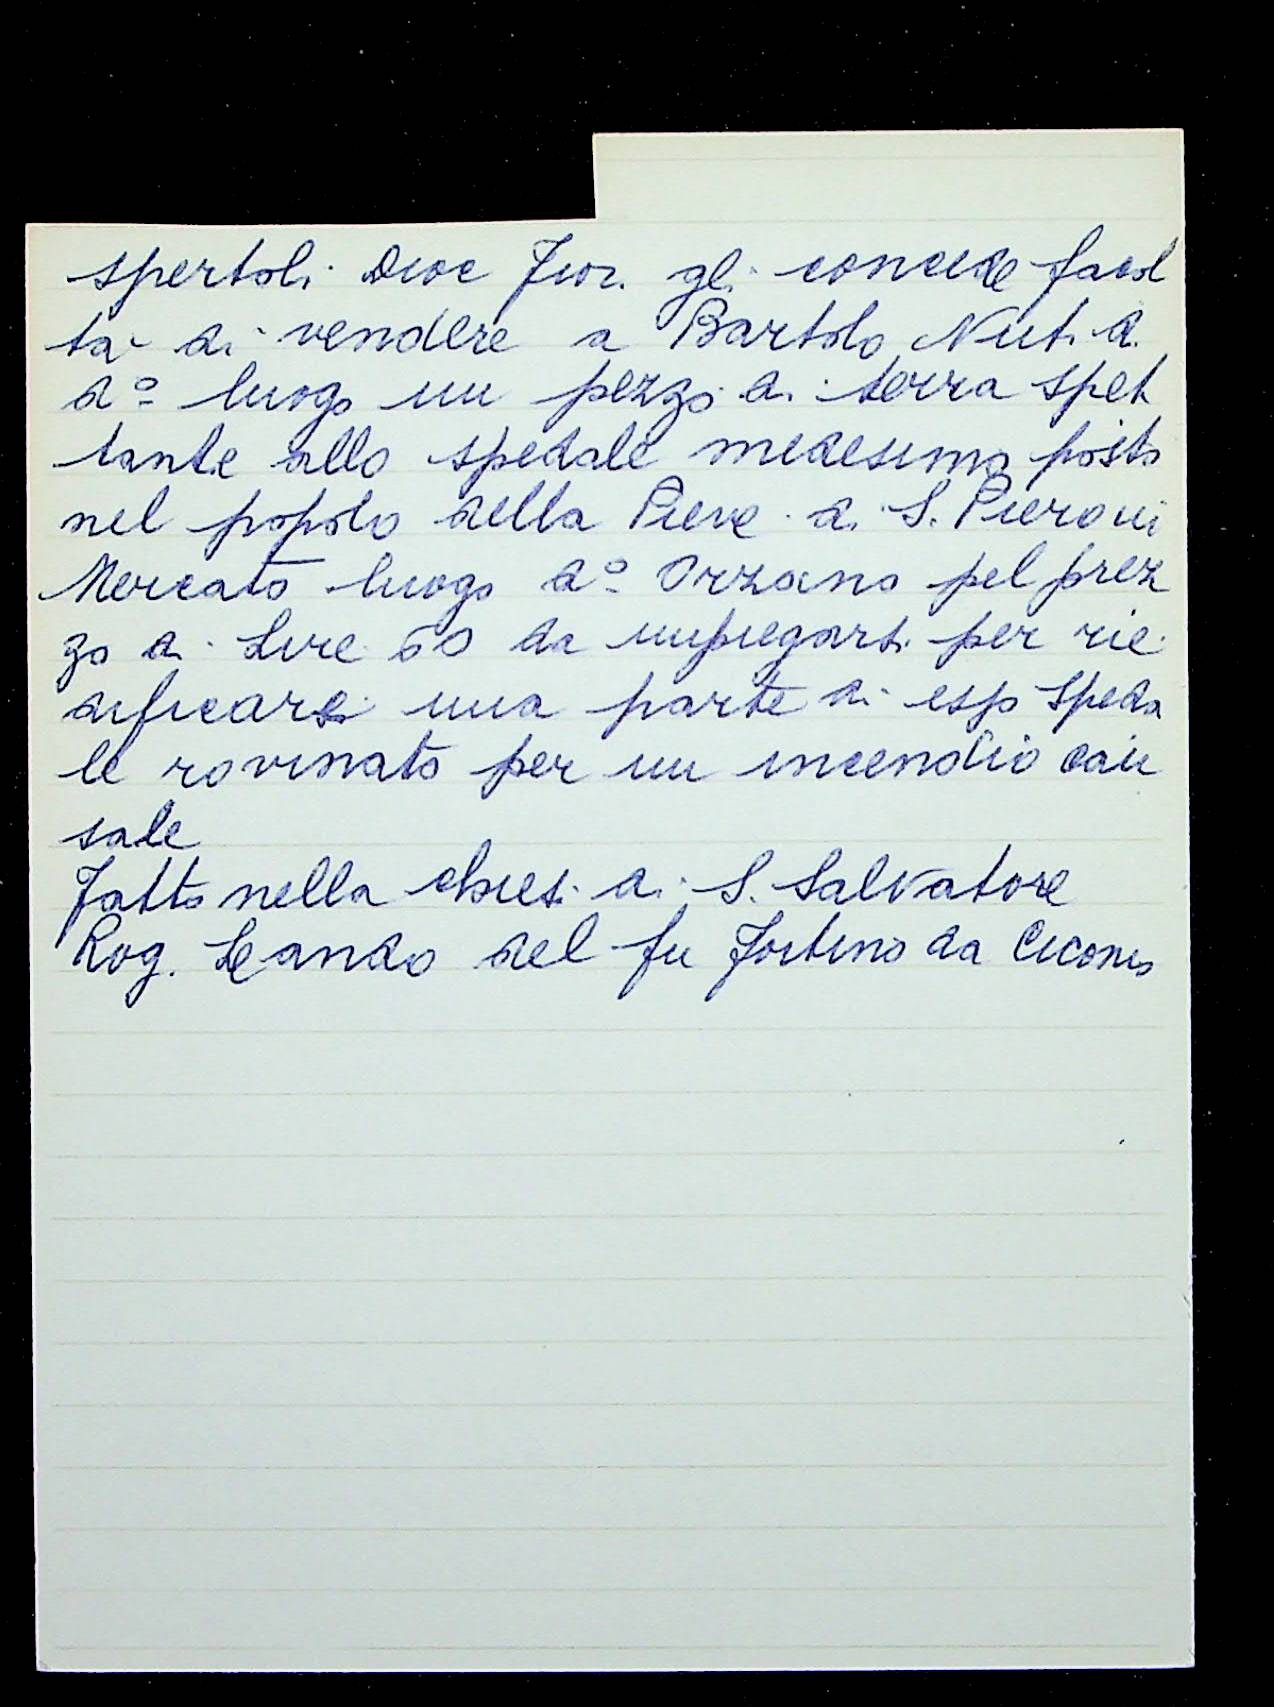 spertoli Dioc Fior. gli concede facol
tà di vendere a Bartolo Nuti di
d° luogo un pezzo di terra spet
tante allo spedale medesimo posto
nel popolo della Pieve di S. Piero in
Mercato luogo d° Orzano pel prez
zo di Lire 60 da impiegarsi per rie
dificare una parte di esso Speda
le rovinato per un incendio cau
sale
Fatto nella chiesi di S. Salvatore
Rog. Lando del fu Fortino da Cicones